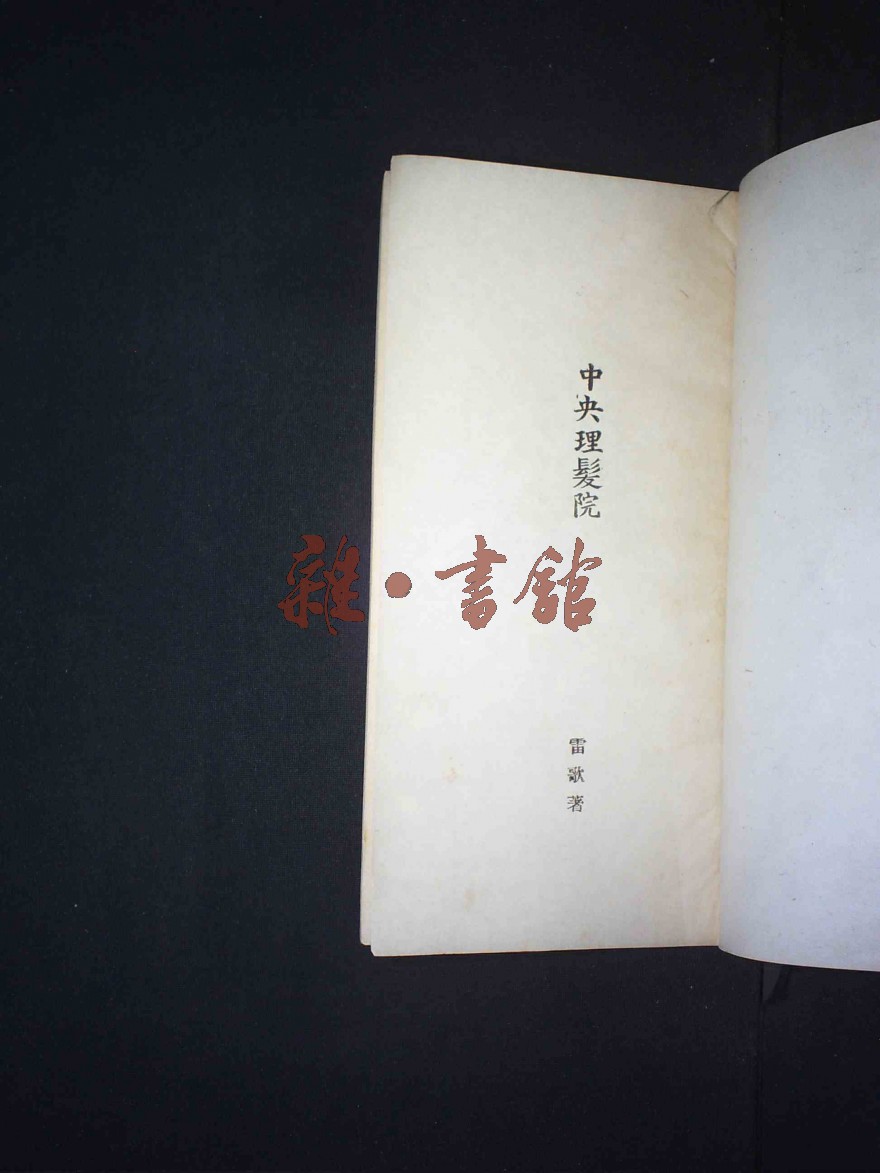 中央理髮院
雷歌著
雜·書館